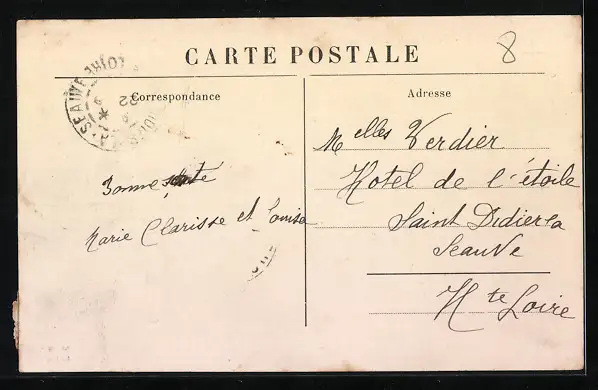 CARTE POSTALE
8
Correspondance
Adresse
Bonne santé
Marie Clarisse et Louisa
Melles Verdier
Hotel de l'étoile
Saint Didier la
Seauve
Hte Loire